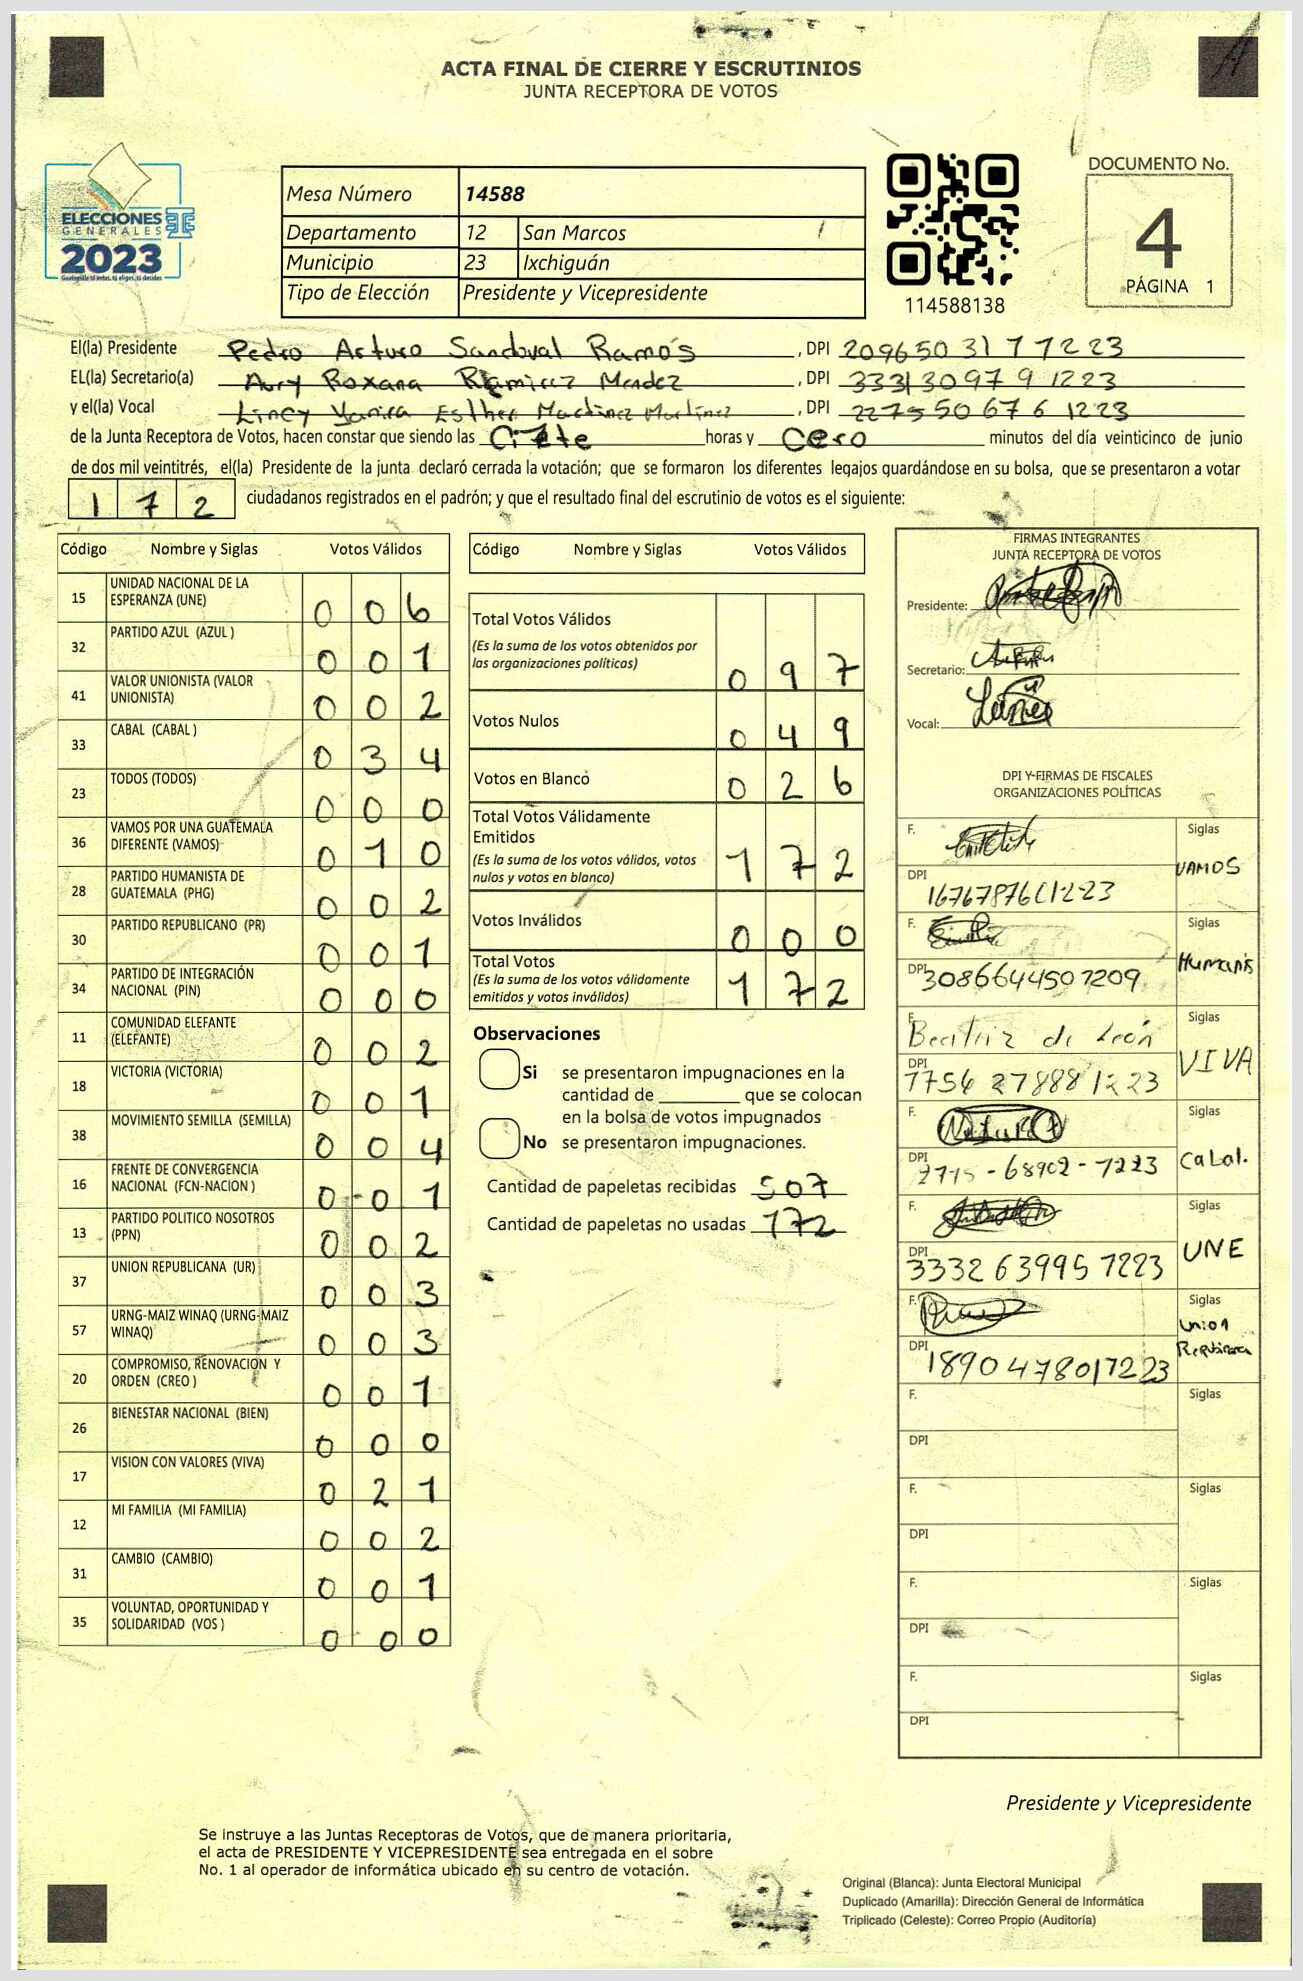 ACTA FINAL DE CIERRE Y ESCRUTINIOS
JUNTA RECEPTORA DE VOTOS
ELECCIONES
GENERALES
2023
Mesa Número 14588
Departamento 12 San Marcos
Municipio 23 Ixchiguán
Tipo de Elección Presidente y Vicepresidente
114588138
DOCUMENTO No.
4
PÁGINA 1
El(la) Presidente Pedro Arturo Sandoval Ramos, DPI 2096503177223
EL(la) Secretario(a) Aury Roxana Ramirez Mendez, DPI 3331309791223
y el(la) Vocal Lincy Yanira Esther Martinez Martinez, DPI 2275506761223
de la Junta Receptora de Votos, hacen constar que siendo las Ciete horas y Cero minutos del día veinticinco de junio
de dos mil veintitrés, el(la) Presidente de la junta declaró cerrada la votación; que se formaron los diferentes legajos guardándose en su bolsa, que se presentaron a votar
172 ciudadanos registrados en el padrón; y que el resultado final del escrutinio de votos es el siguiente:
Código Nombre y Siglas Votos Válidos
15 UNIDAD NACIONAL DE LA ESPERANZA (UNE) 006
32 PARTIDO AZUL (AZUL ) 001
41 VALOR UNIONISTA (VALOR UNIONISTA) 002
33 CABAL (CABAL ) 034
23 TODOS (TODOS) 000
36 VAMOS POR UNA GUATEMALA DIFERENTE (VAMOS) 010
28 PARTIDO HUMANISTA DE GUATEMALA (PHG) 002
30 PARTIDO REPUBLICANO (PR) 001
34 PARTIDO DE INTEGRACIÓN NACIONAL (PIN) 000
11 COMUNIDAD ELEFANTE (ELEFANTE) 002
18 VICTORIA (VICTORIA) 001
38 MOVIMIENTO SEMILLA (SEMILLA) 004
16 FRENTE DE CONVERGENCIA NACIONAL (FCN-NACION ) 0-01
13 PARTIDO POLITICO NOSOTROS (PPN) 002
37 UNION REPUBLICANA (UR) 003
57 URNG-MAIZ WINAQ (URNG-MAIZ WINAQ) 003
20 COMPROMISO, RENOVACION Y ORDEN (CREO ) 001
26 BIENESTAR NACIONAL (BIEN) 000
17 VISION CON VALORES (VIVA) 021
12 MI FAMILIA (MI FAMILIA) 002
31 CAMBIO (CAMBIO) 001
35 VOLUNTAD, OPORTUNIDAD Y SOLIDARIDAD (VOS ) 000
Código Nombre y Siglas Votos Válidos
Total Votos Válidos 097
(Es la suma de los votos obtenidos por
las organizaciones políticas)
Votos Nulos 049
Votos en Blanco 026
Total Votos Válidamente
Emitidos 172
(Es la suma de los votos válidos, votos
nulos y votos en blanco)
Votos Inválidos 000
Total Votos 172
(Es la suma de los votos válidamente
emitidos y votos inválidos)
Observaciones
Si se presentaron impugnaciones en la
cantidad de ________ que se colocan
en la bolsa de votos impugnados
No se presentaron impugnaciones.
Cantidad de papeletas recibidas 507
Cantidad de papeletas no usadas 172
FIRMAS INTEGRANTES
JUNTA RECEPTORA DE VOTOS
Presidente:
Secretario:
Vocal:
DPI Y FIRMAS DE FISCALES
ORGANIZACIONES POLÍTICAS
F. Siglas
VAMOS
DPI
F. Siglas
Humanis
DPI 3086644507209
F. Beatriz de León Siglas
VIVA
DPI 1754 27888 1223
F. Siglas
Cabal.
DPI 2775-68902-7223
F. Siglas
UNE
DPI 3332 63995 7223
F. Siglas
Union
DPI 1890478017223
F. Siglas
DPI
F. Siglas
DPI
F. Siglas
DPI
F. Siglas
DPI
Presidente y Vicepresidente
Se instruye a las Juntas Receptoras de Votos, que de manera prioritaria,
el acta de PRESIDENTE Y VICEPRESIDENTE sea entregada en el sobre
No. 1 al operador de informática ubicado en su centro de votación.
Original (Blanca): Junta Electoral Municipal
Duplicado (Amarilla): Dirección General de Informática
Triplicado (Celeste): Correo Propio (Auditoría)